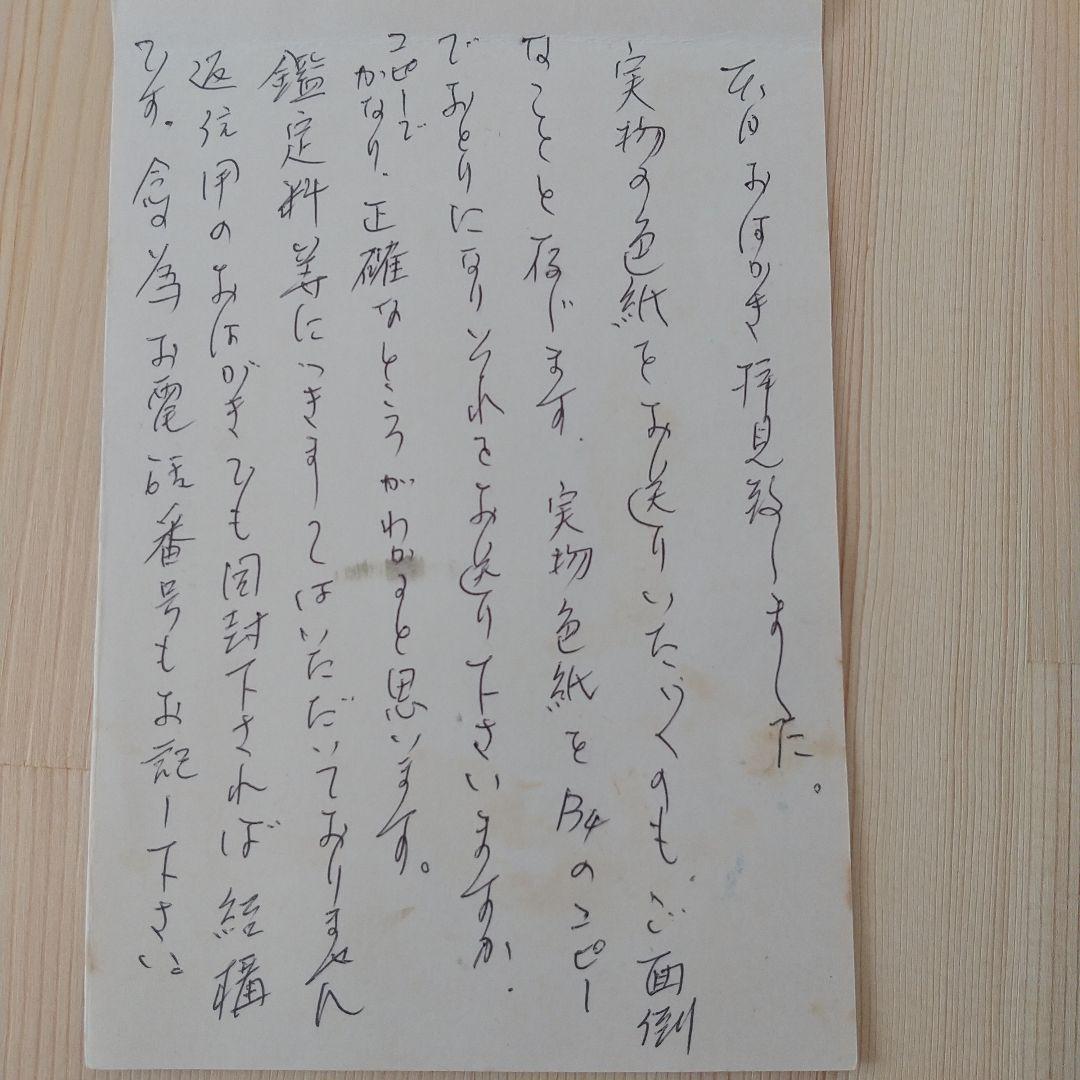 本日おはがき拝見致しました。
実物の色紙をお送りいたゞくのも、ご面倒
なことと存じます。実物色紙をB4のコピー
でおとりになりそれをお送り下さいますか.
コピーで
かなり、正確なところがわかると思います。
鑑定料等につきましてはいただいておりません
返信用のおはがきでも同封下されば結構
です。念の為お電話番号もお記し下さい。